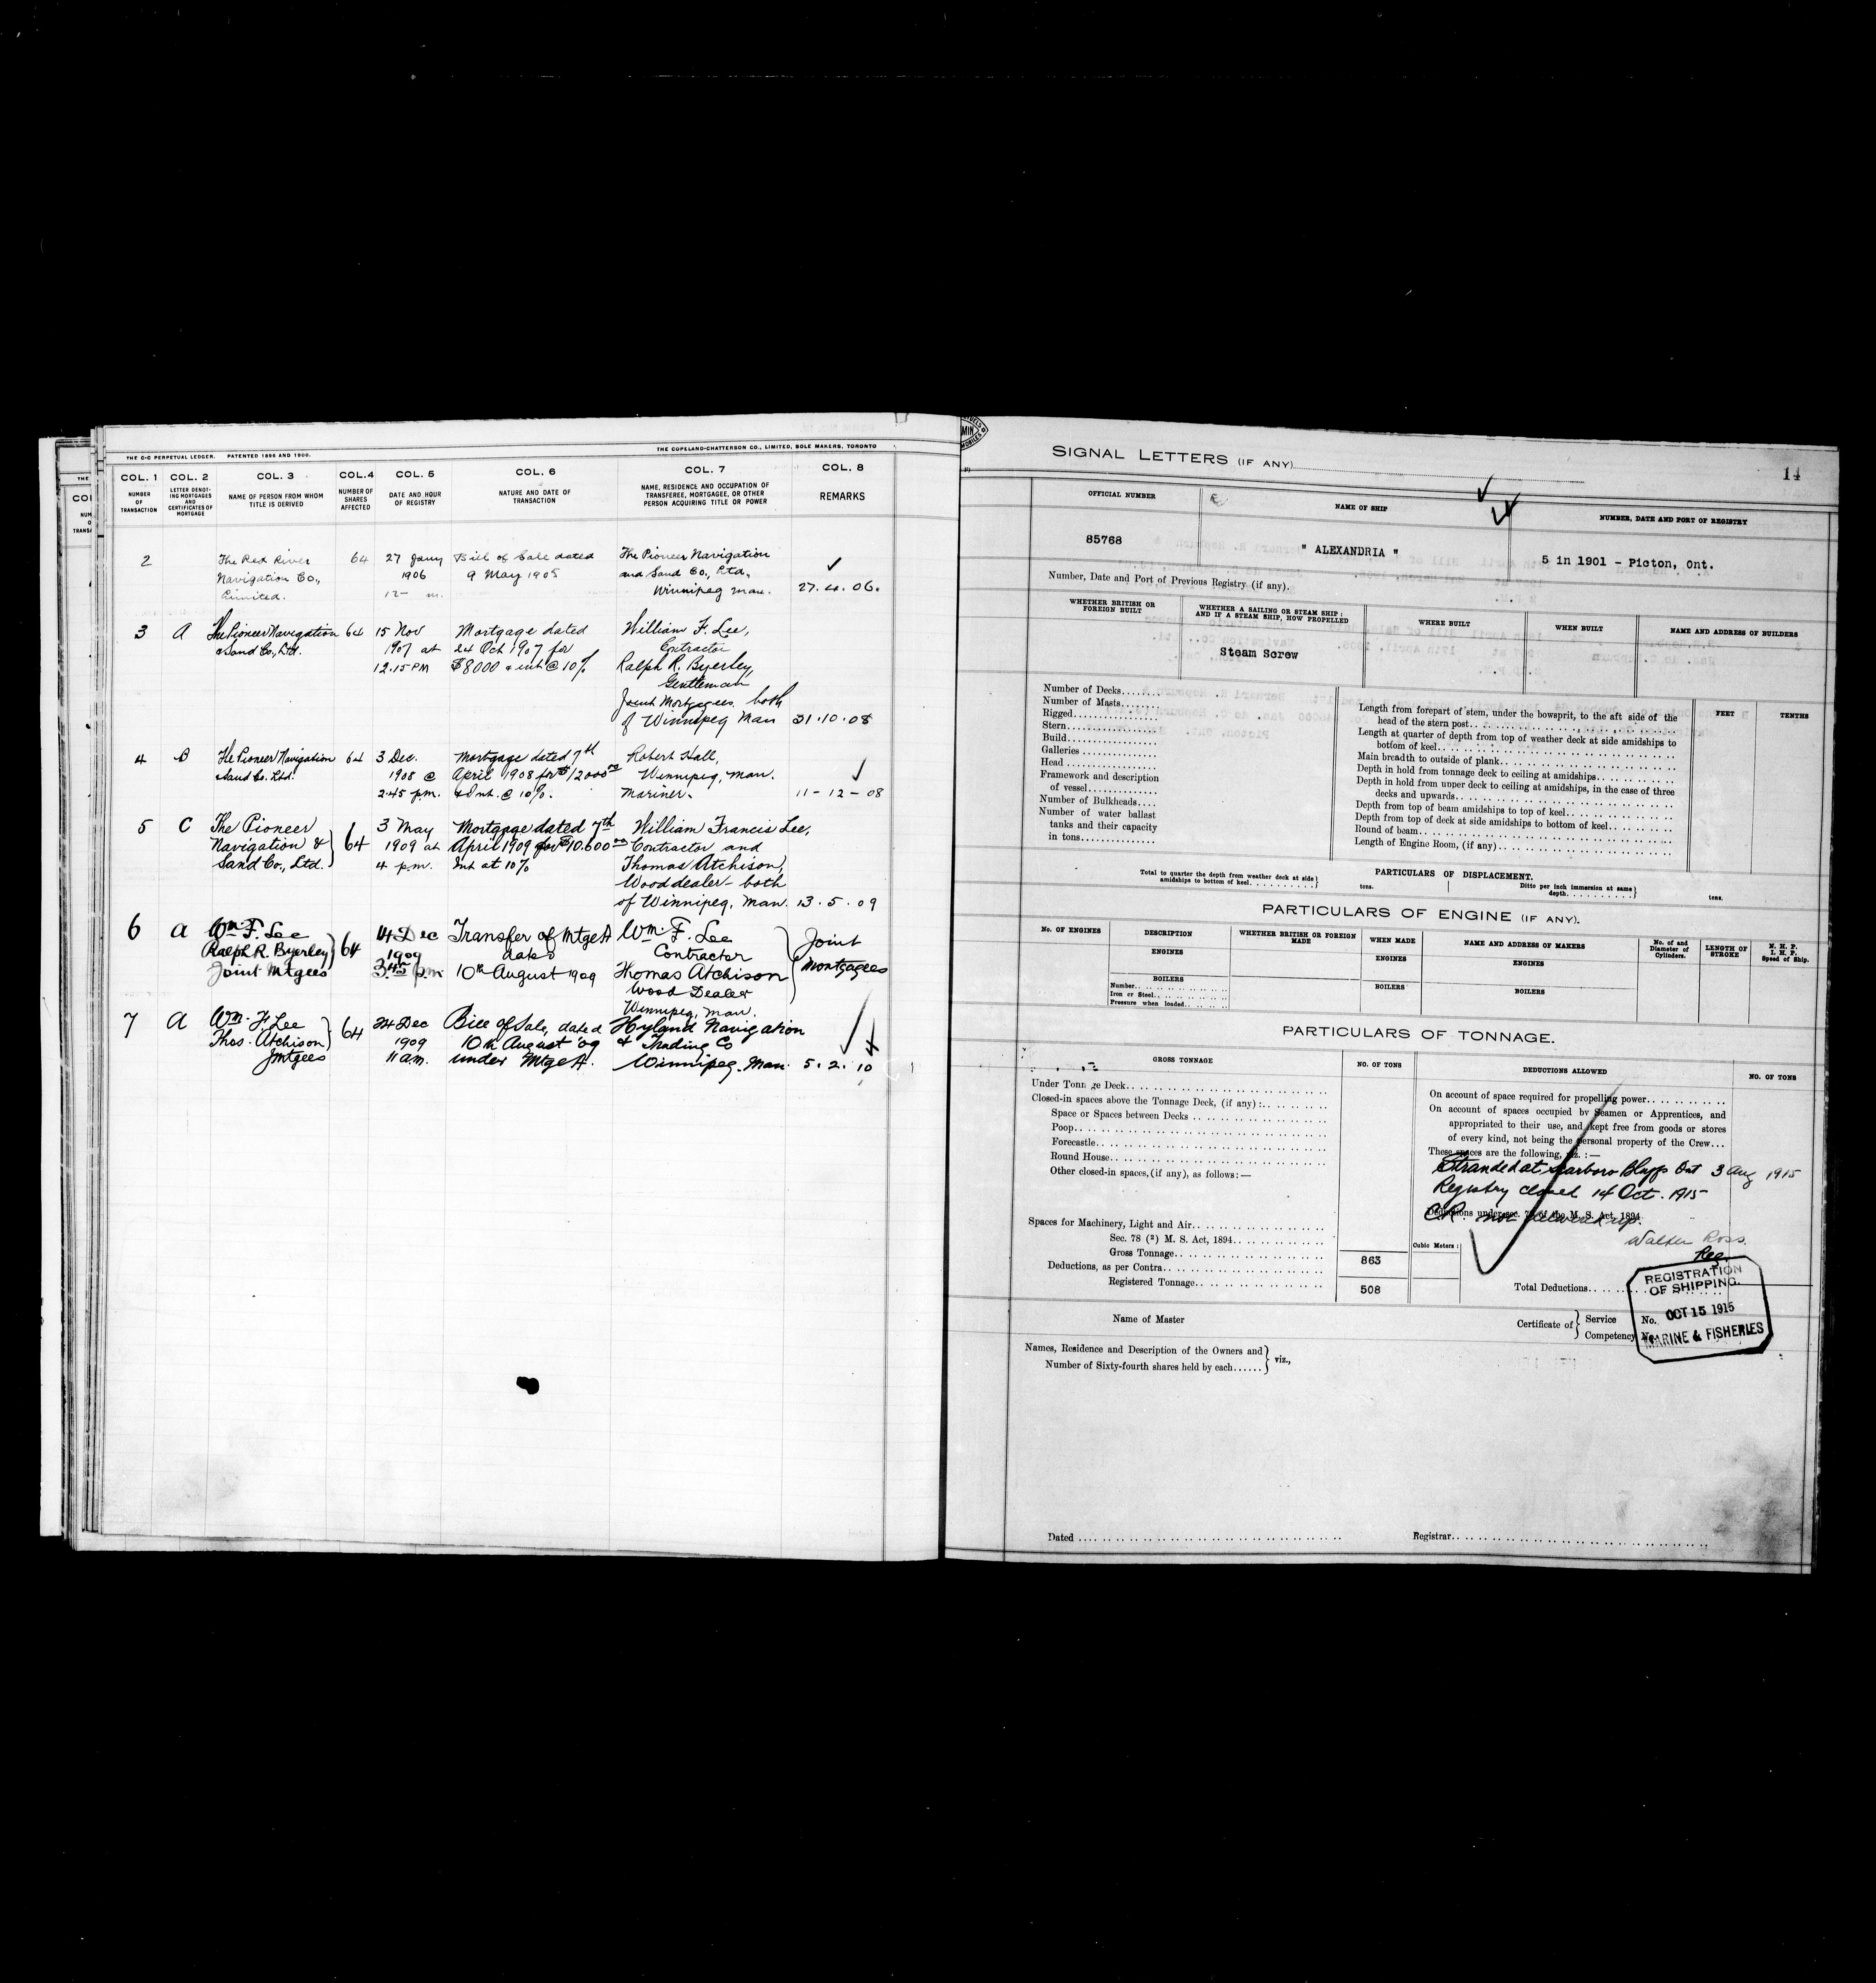 THE C-C PERPETUAL LEDGER. PATENTED 1896 AND 1900.
THE COPELAND-CHATTERSON CO., LIMITED, SOLE MAKERS, TORONTO
COL. 1 COL. 2 COL. 3 COL. 4 COL. 5 COL. 6 COL. 7 COL. 8
NUMBER OF TRANSACTION
LETTER DENOTING MORTGAGES AND CERTIFICATES OF MORTGAGE
NAME OF PERSON FROM WHOM TITLE IS DERIVED
NUMBER OF SHARES AFFECTED
DATE AND HOUR OF REGISTRY
NATURE AND DATE OF TRANSACTION
NAME, RESIDENCE AND OCCUPATION OF TRANSFEREE, MORTGAGEE, OR OTHER PERSON ACQUIRING TITLE OR POWER
REMARKS
2 The Red River 64 27 Jany Bill of Sale dated The Pioneer Navigation
Navigation Co., 1906 9 May 1905 and Sand Co., Ltd.,
Limited. 12- m. Winnipeg Man. 27.4.06.
3 A The Pioneer Navigation 64 15 Nov Mortgage dated William F. Lee,
& Sand Co., Ltd. 1907 at 24 Oct 1907 for Contractor
12.15 PM $8000 & int @ 10% Ralph R. Byerley,
Gentleman
Joint Mortgagees both
of Winnipeg Man 31.10.08
4 B The Pioneer Navigation 64 3 Dec. Mortgage dated 7th Robert Hall,
Sand Co. Ltd. 1908 @ April 1908 for $12000 Winnipeg, Man.
2.45 p.m. & Int. @ 10%. Mariner. 11-12-08
5 C The Pioneer 64 3 May Mortgage dated 7th William Francis Lee,
Navigation & 1909 at April 1909 for $10.600 Contractor and
Sand Co., Ltd. 4 p.m. Int at 10% Thomas Atchison,
Wood dealer - both
of Winnipeg, Man. 13.5.09
6 A Wm. F. Lee 64 14 Dec Transfer of Mtge A Wm. F. Lee Joint
Ralph R. Byerley 1909 dated Contractor Mortgagees
Joint Mtgees 3.45 p.m. 10th August 1909 Thomas Atchison
Wood Dealer
Winnipeg, Man.
7 A Wm. F. Lee 64 24 Dec Bill of Sale, dated Hyland Navigation
Thos. Atchison 1909 10th August '09 & Trading Co
Jmtgees 11 a.m. under Mtge A. Winnipeg. Man. 5.2.10
SIGNAL LETTERS (IF ANY)
14
OFFICIAL NUMBER NAME OF SHIP NUMBER, DATE AND PORT OF REGISTRY
85768 " ALEXANDRIA " 5 in 1901 - Picton, Ont.
Number, Date and Port of Previous Registry (if any).
WHETHER BRITISH OR FOREIGN BUILT
WHETHER A SAILING OR STEAM SHIP; AND IF A STEAM SHIP, HOW PROPELLED
WHERE BUILT
WHEN BUILT
NAME AND ADDRESS OF BUILDERS
Steam Screw
Number of Decks
Number of Masts
Rigged
Stern
Build
Galleries
Head
Framework and description
of vessel
Number of Bulkheads
Number of water ballast
tanks and their capacity
in tons
FEET TENTHS
Length from forepart of stem, under the bowsprit, to the aft side of the
head of the stern post
Length at quarter of depth from top of weather deck at side amidships to
bottom of keel
Main breadth to outside of plank
Depth in hold from tonnage deck to ceiling at amidships
Depth in hold from upper deck to ceiling at amidships, in the case of three
decks and upwards
Depth from top of beam amidships to top of keel
Depth from top of deck at side amidships to bottom of keel
Round of beam
Length of Engine Room, (if any)
PARTICULARS OF DISPLACEMENT.
Total to quarter the depth from weather deck at side amidships to bottom of keel tons.
Ditto per inch immersion at same depth tons.
PARTICULARS OF ENGINE (IF ANY).
No. OF ENGINES DESCRIPTION WHETHER BRITISH OR FOREIGN MADE WHEN MADE NAME AND ADDRESS OF MAKERS No. of and Diameter of Cylinders. LENGTH OF STROKE N. H. P. I. H. P. Speed of Ship.
ENGINES ENGINES ENGINES
BOILERS BOILERS BOILERS
Number
Iron or Steel
Pressure when loaded
PARTICULARS OF TONNAGE.
GROSS TONNAGE NO. OF TONS DEDUCTIONS ALLOWED NO. OF TONS
Under Tonnage Deck
Closed-in spaces above the Tonnage Deck, (if any) :
Space or Spaces between Decks
Poop
Forecastle
Round House
Other closed-in spaces, (if any), as follows:—
Spaces for Machinery, Light and Air
Sec. 78 (2) M. S. Act, 1894
Gross Tonnage 863
Deductions, as per Contra
Registered Tonnage 508
Cubic Meters :
On account of space required for propelling power
On account of spaces occupied by Seamen or Apprentices, and
appropriated to their use, and kept free from goods or stores
of every kind, not being the personal property of the Crew
These spaces are the following, viz. :—
Stranded at Scarboro Bluffs Ont 3 Aug 1915
Registry closed 14 Oct. 1915
Deductions under sec. 79 of the M. S. Act, 1894
C.R. not delivered up.
Walter Ross.
Reg
Total Deductions
REGISTRATION
OF SHIPPING.
OCT 15 1915
MARINE & FISHERIES
Name of Master
Certificate of Service No.
Competency No.
Names, Residence and Description of the Owners and
Number of Sixty-fourth shares held by each viz.,
Dated
Registrar